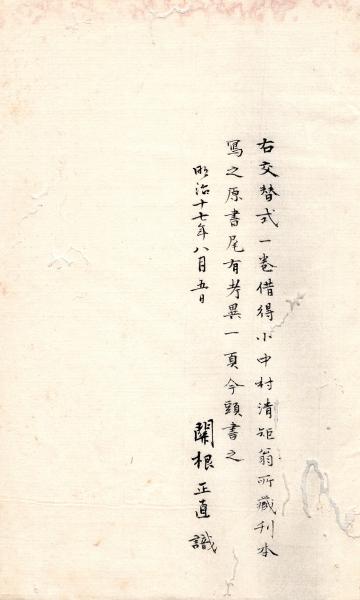 右交替式一巻借得小中村清矩翁所藏刊本
寫之原書尾有考異一頁今頭書之
明治十七年八月五日
關根正直識